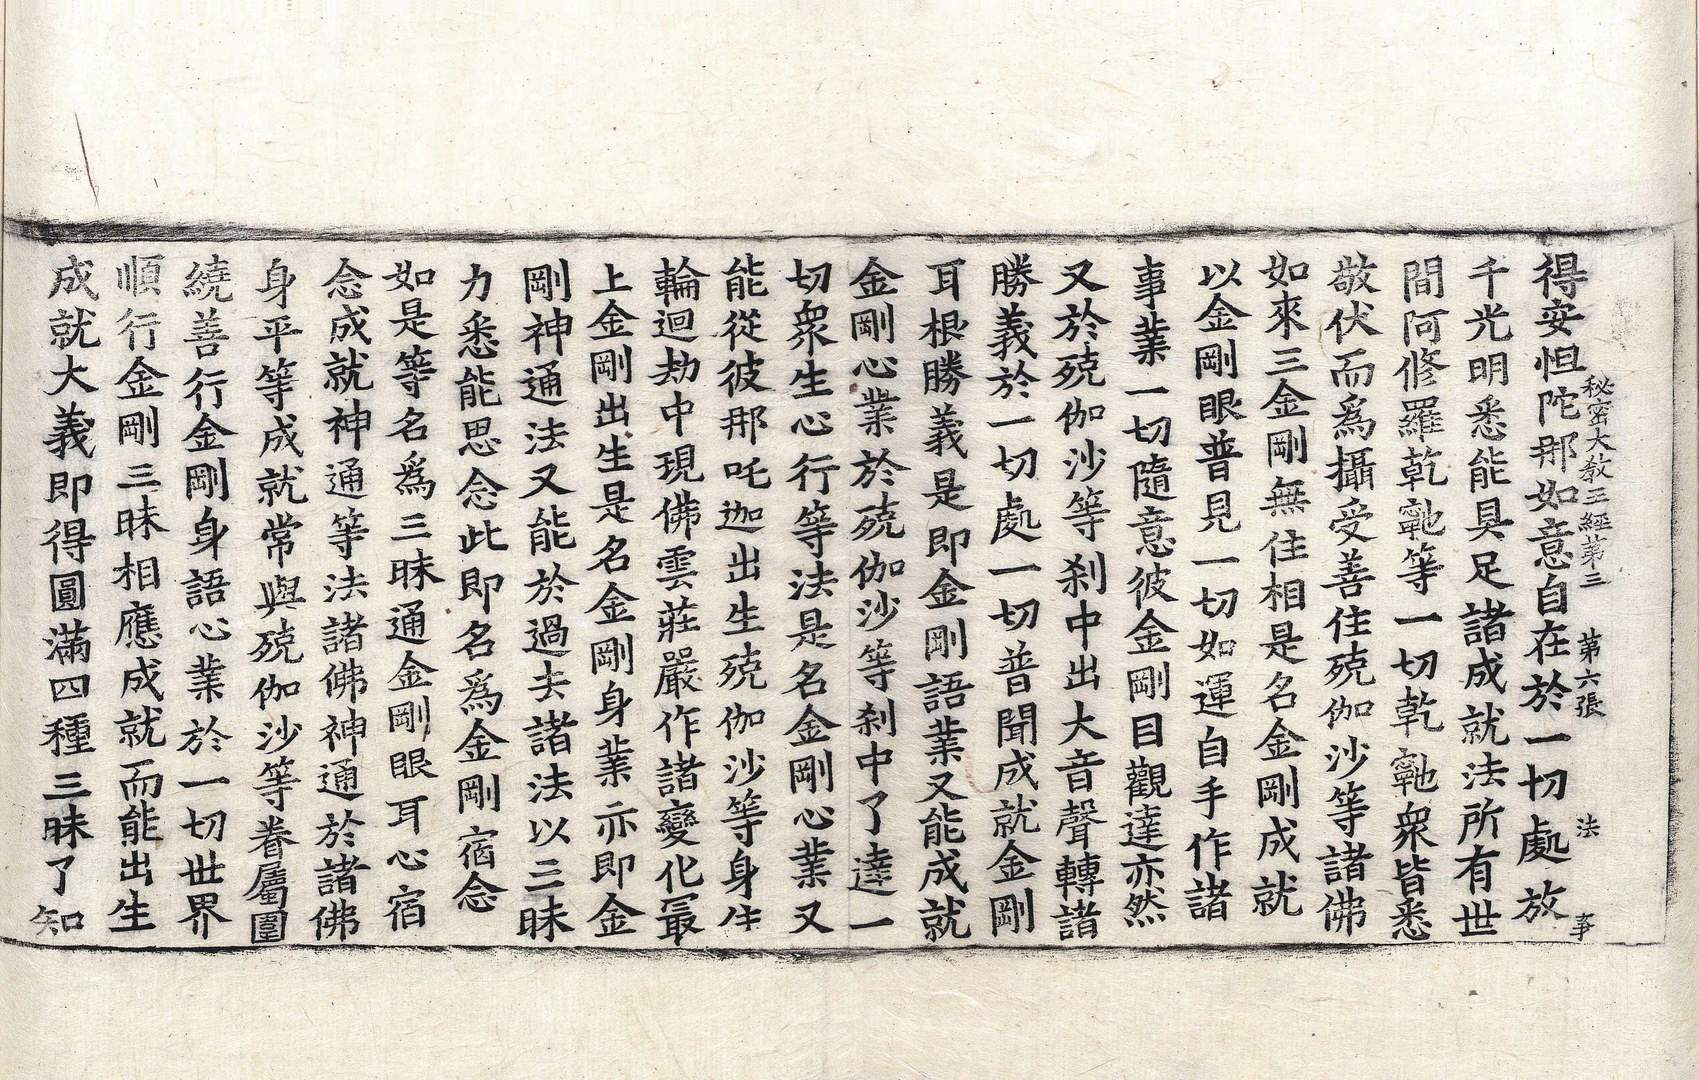 秘密大教王經第三 第六張 法 亊
得安怛陀那如意自在於一切處放
千光明悉能具足諸成就法所有世
間阿修羅乾闥等一切乾闥衆皆悉
敬伏而爲攝受善住殑伽沙等諸佛
如來三金剛無住相是名金剛成就
以金剛眼普見一切如運自手作諸
事業一切隨意彼金剛目觀達亦然
又於殑伽沙等刹中出大音聲轉諸
勝義於一切處一切普聞成就金剛
耳根勝義是即金剛語業又能成就
金剛心業於殑伽沙等刹中了達一
切衆生心行等法是名金剛心業又
能從彼那吒迦出生殑伽沙等身生
輪迴劫中現佛雲莊嚴作諸變化冣
上金剛出生是名金剛身業亦即金
剛神通法又能於過去諸法以三昧
力悉能思念此即名爲金剛宿念
如是等名爲三昧通金剛眼耳心宿
念成就神通等法諸佛神通於諸佛
身平等成就常與殑伽沙等眷屬圍
繞善行金剛身語心業於一切世界
順行金剛三昧相應成就而能出生
成就大義即得圓滿四種三昧了知